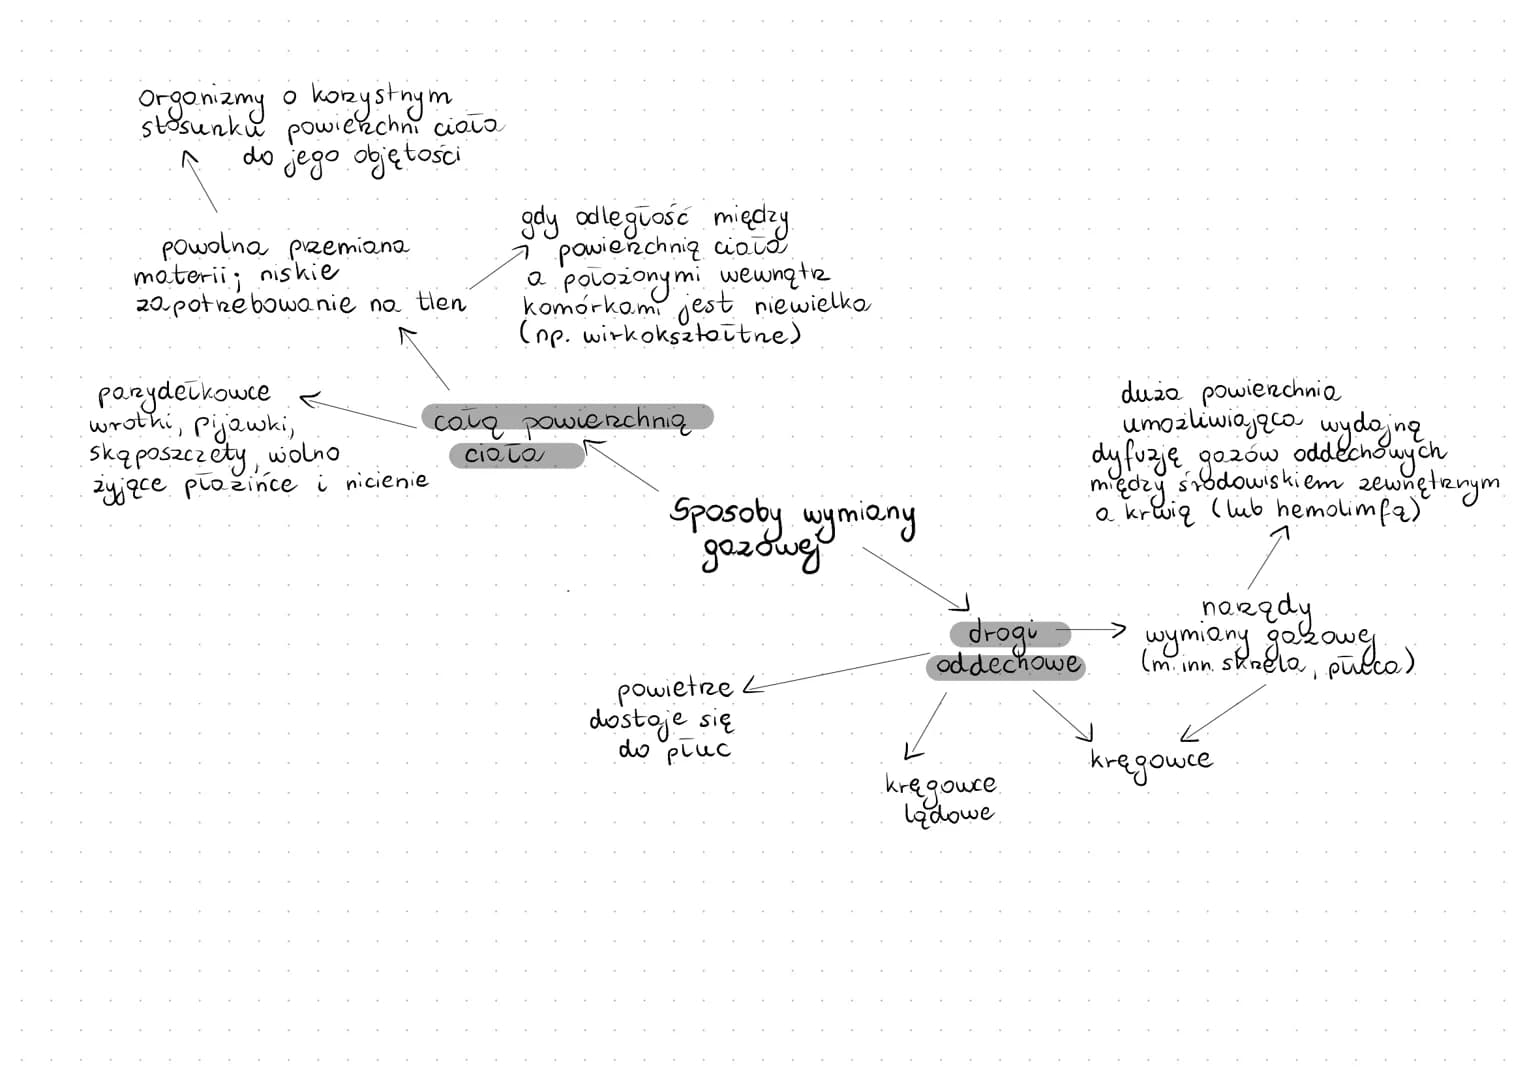 Organizmy o korzystnym
stosunku powierzchni ciała
do jego objętości
powolna przemiana
materii; niskie
zapotrzebowanie na tlen
gdy odległość między
powierzchnią ciała
a położonymi wewnątrz
komórkami jest niewielka
(np. wirkokształtne)
parzydełkowce
wrotki, pijawki,
skąposzczety, wolno
żyjące płazińce i nicienie
całą powierzchnią
ciała
Sposoby wymiany
gazowej
duża powierzchnia
umożliwiająca wydajną
dyfuzję gazów oddechowych
między środowiskiem zewnętrznym
a krwią (lub hemolimfą)
drogi
oddechowe
narządy
wymiany gazowej
(m. inn. skrzela, płuca)
powietrze
dostaje się
do płuc
kręgowce
lądowe
kręgowce